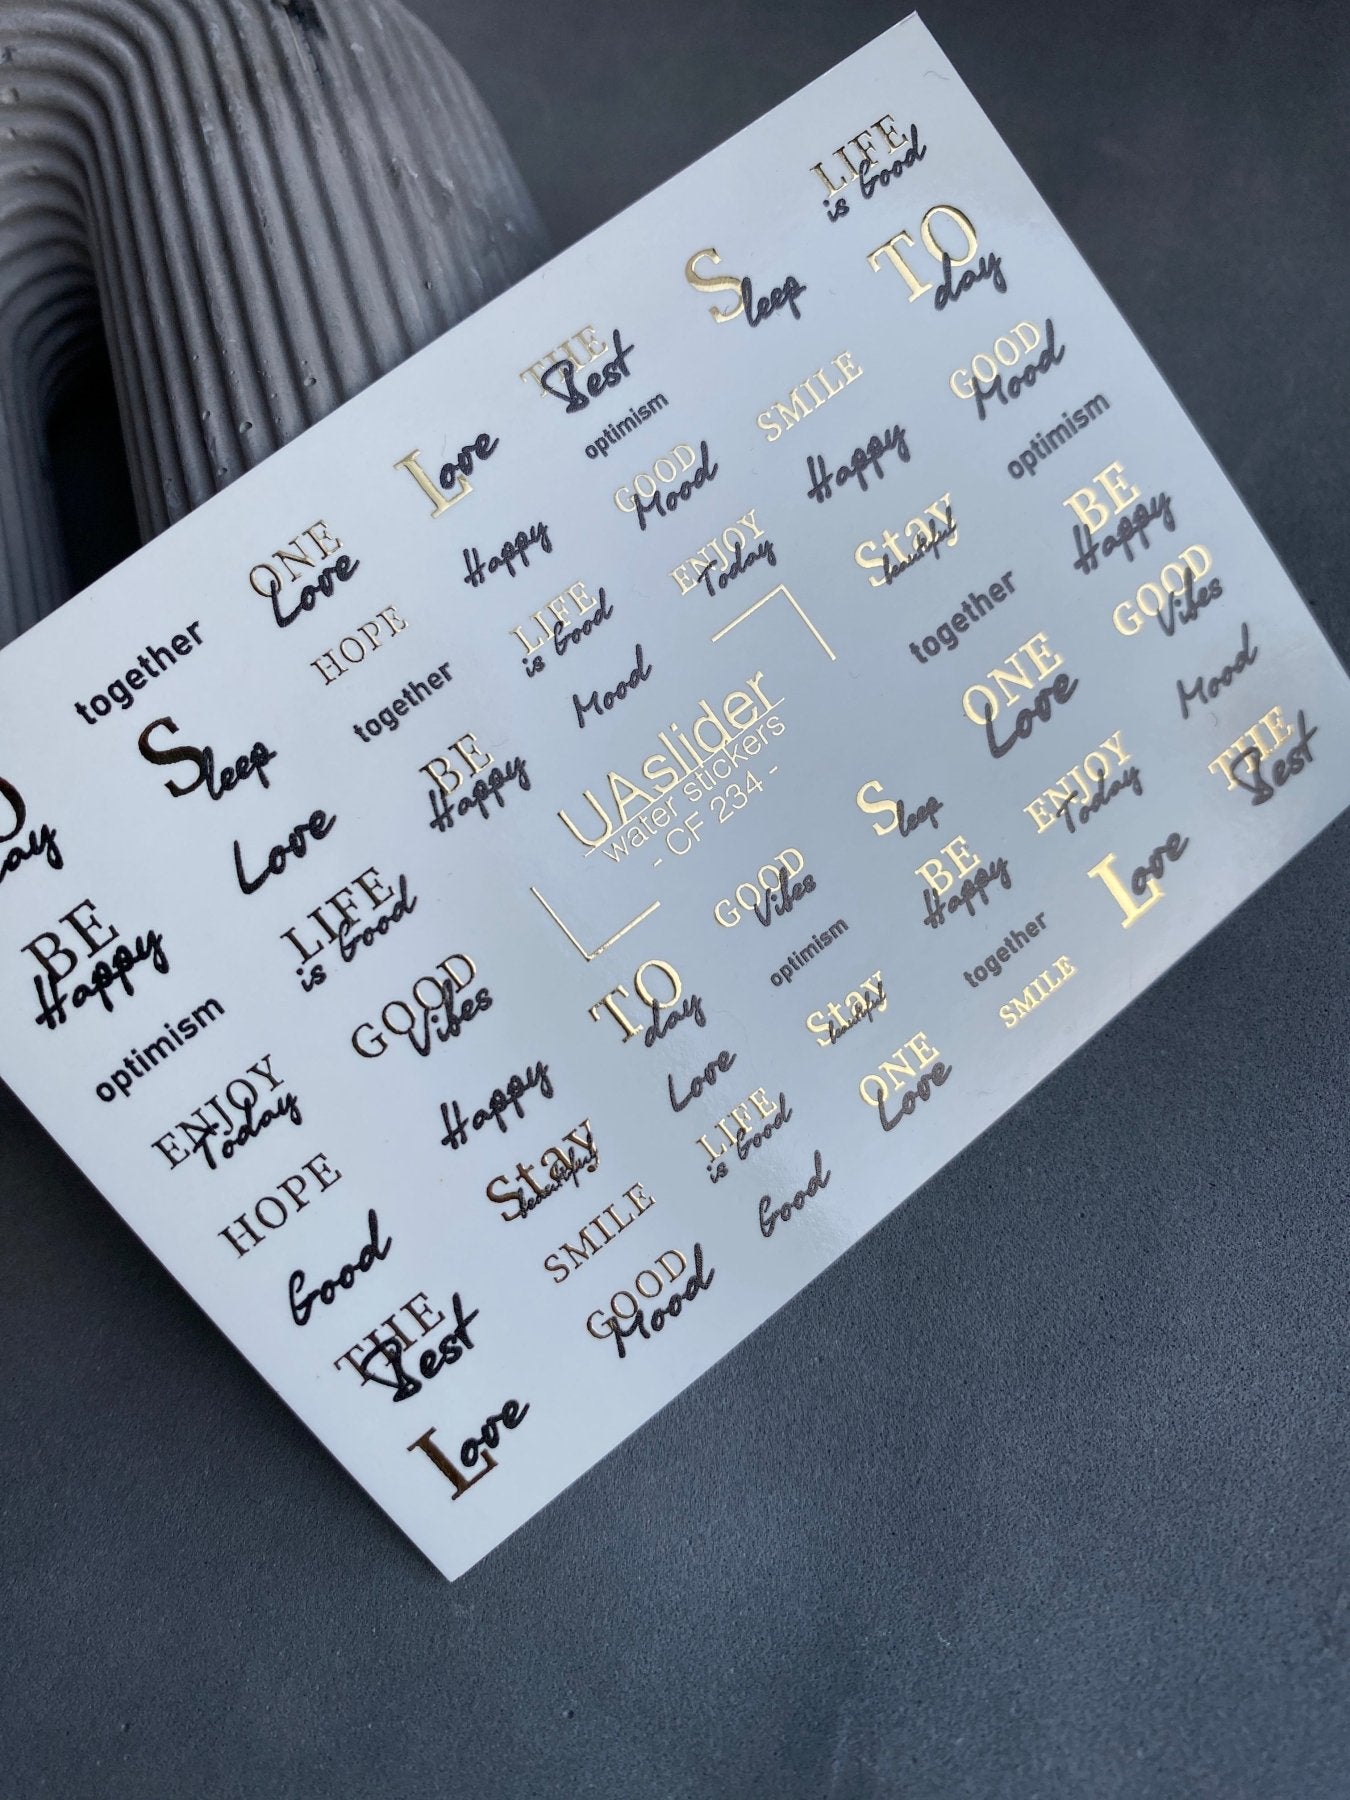 LIFE
is Good
Sleep
TO
day
THE
Best
optimism
SMILE
GOOD
Mood
Love
GOOD
Mood
Happy
optimism
ONE
Love
Happy
ENJOY
Today
Stay
beautiful
BE
Happy
together
HOPE
LIFE
is Good
together
GOOD
Vibes
Sleep
together
Mood
ONE
Love
Mood
BE
Happy
UAslider
water stickers
- CF 234 -
Sleep
ENJOY
Today
THE
Best
day
Love
LIFE
is Good
GOOD
Vibes
BE
Happy
Love
BE
Happy
GOOD
Vibes
TO
day
optimism
together
optimism
Happy
Love
Stay
beautiful
SMILE
ENJOY
Today
Stay
beautiful
LIFE
is Good
ONE
Love
HOPE
SMILE
Good
Good
GOOD
Mood
THE
Best
Love